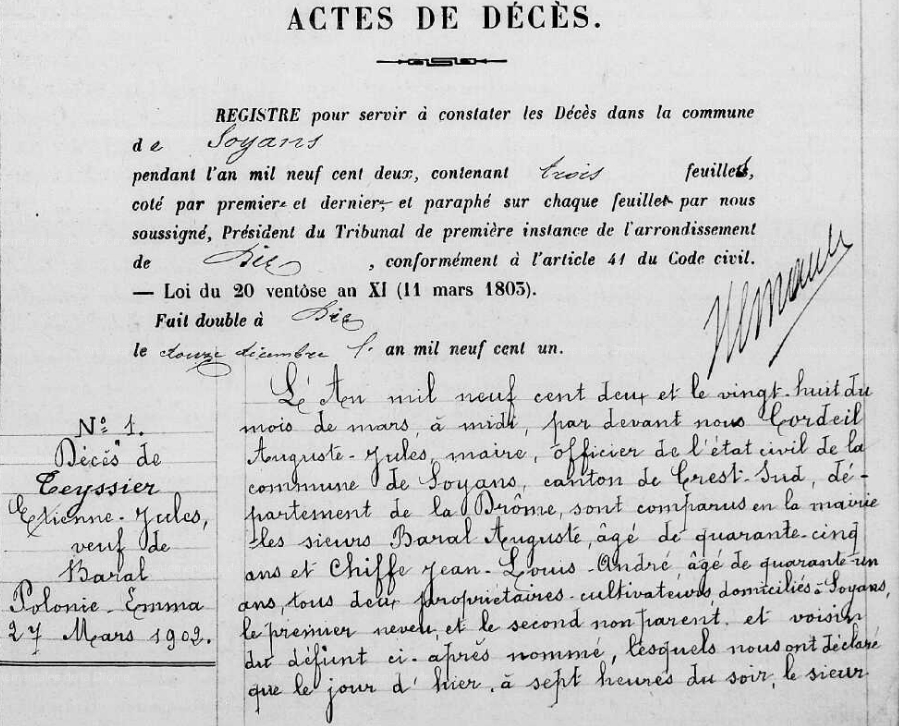 ACTES DE DÉCÈS.
REGISTRE pour servir à constater les Décès dans la commune
de Soyans
pendant l'an mil neuf cent deux, contenant trois feuillets,
coté par premier et dernier, et paraphé sur chaque feuillet par nous
soussigné, Président du Tribunal de première instance de l'arrondissement
de Die, conformément à l'article 41 du Code civil.
— Loi du 20 ventôse an XI (11 mars 1803).
Fait double à Die
le douze décembre l'an mil neuf cent un.
N° 1.
Décès de
Teyssier
Etienne-Jules,
veuf de
Baral
Polonie-Emma
27 Mars 1902.
L'An mil neuf cent deux et le vingt-huit du
mois de mars, à midi, par devant nous Cordeil
Auguste-Jules, maire, officier de l'état civil de la
commune de Soyans, canton de Crest-Sud, dé-
partement de la Drôme, sont comparus en la mairie
les sieurs Baral Auguste, âgé de quarante-cinq
ans et Chiffe Jean-Louis-André âgé de quarante-un
ans, tous deux propriétaires-cultivateurs, domiciliés à Soyans,
le premier neveu, et le second non parent et voisin
du défunt ci-après nommé, lesquels nous ont déclaré
que le jour d'hier, à sept heures du soir, le sieur